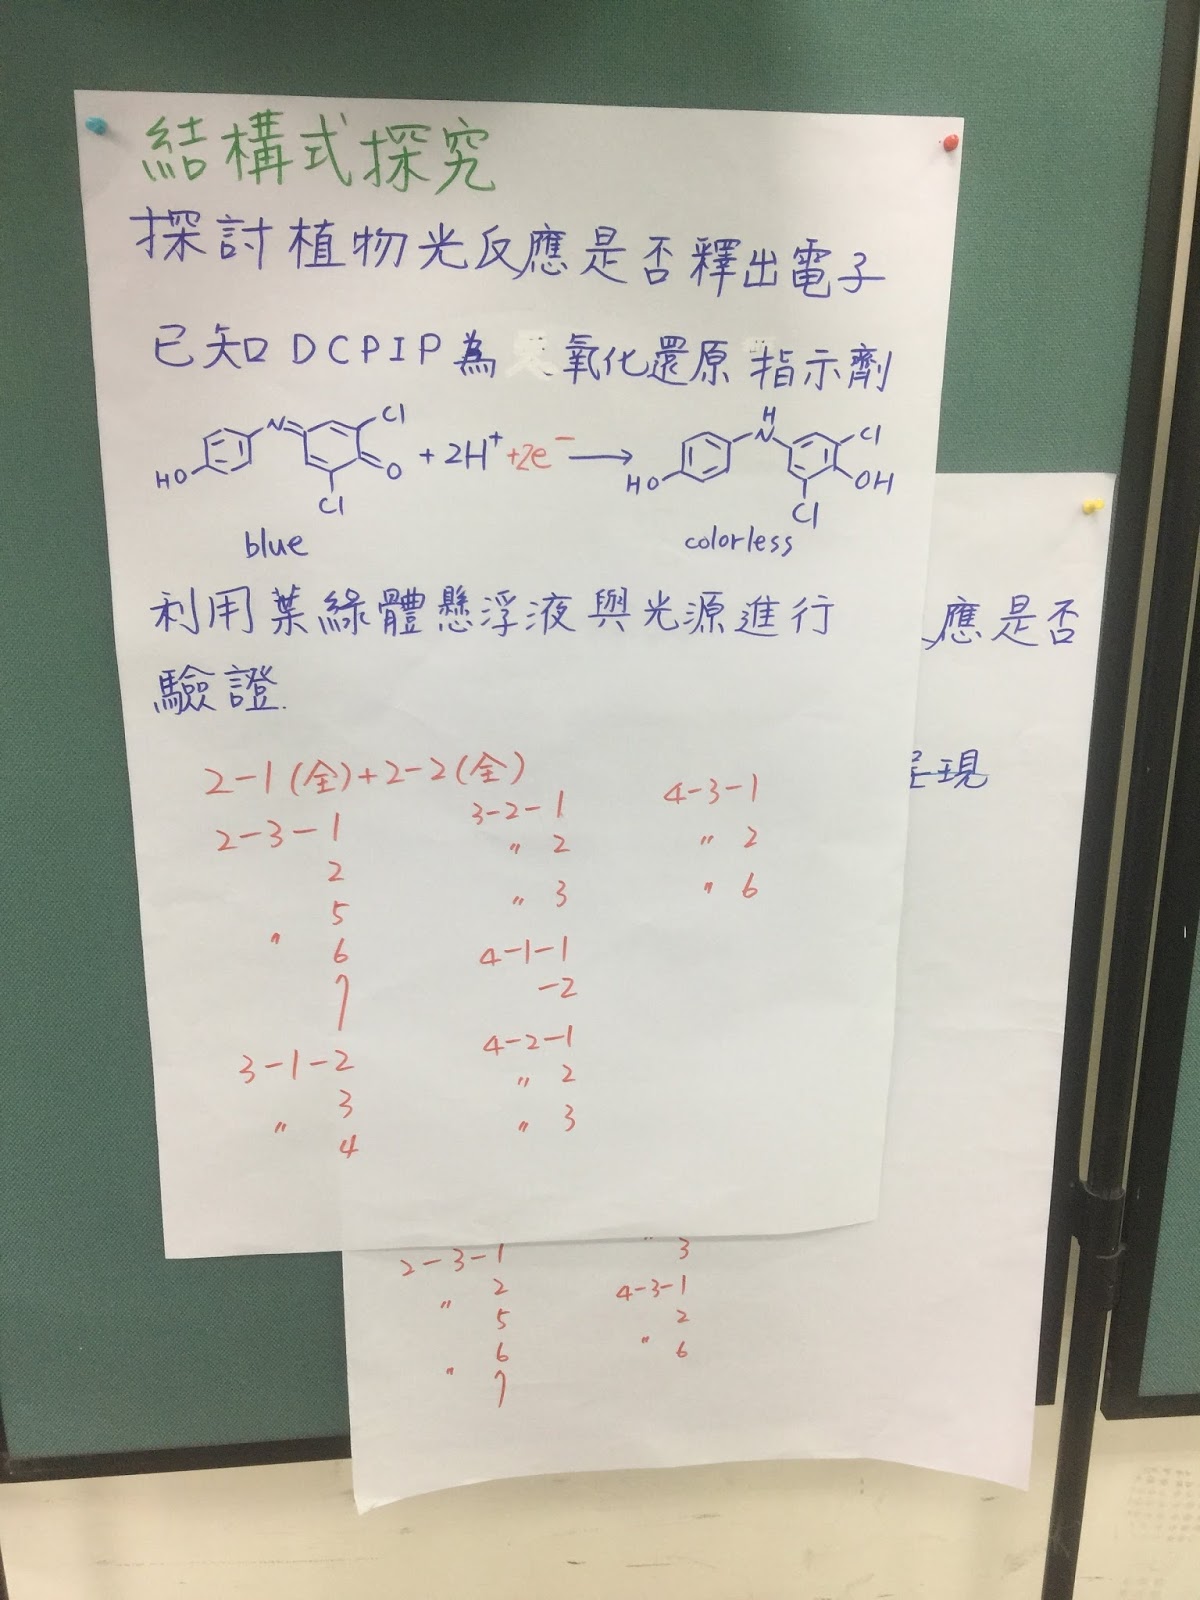 結構式探究
探討植物光反應是否釋出電子
已知DCPIP為氧化還原指示劑
HO N Cl O Cl + 2H⁺ + 2e⁻ → HO H N Cl OH Cl
blue
colorless
利用葉綠體懸浮液與光源進行
驗證.
2-1(全)+2-2(全)
2-3-1
2
5
〃 6
7
3-1-2
3
〃 4
3-2-1
〃 2
〃 3
4-1-1
-2
4-2-1
〃 2
〃 3
4-3-1
〃 2
〃 6
應是否
呈現
2-3-1
〃 2
5
6
〃 7
〃 3
4-3-1
2
〃 6